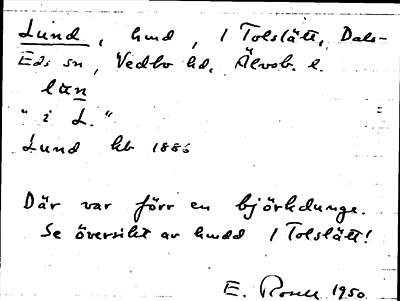 Lund, hmd, 1 Tolslätt, Dals-
Eds sn, Vedbo hd, Älvsb. l.
lun
" i L. "
Lund kb 1886
Där var förr en björkdunge.
Se översikt av hmdd 1 Tolslätt!
E. 1950